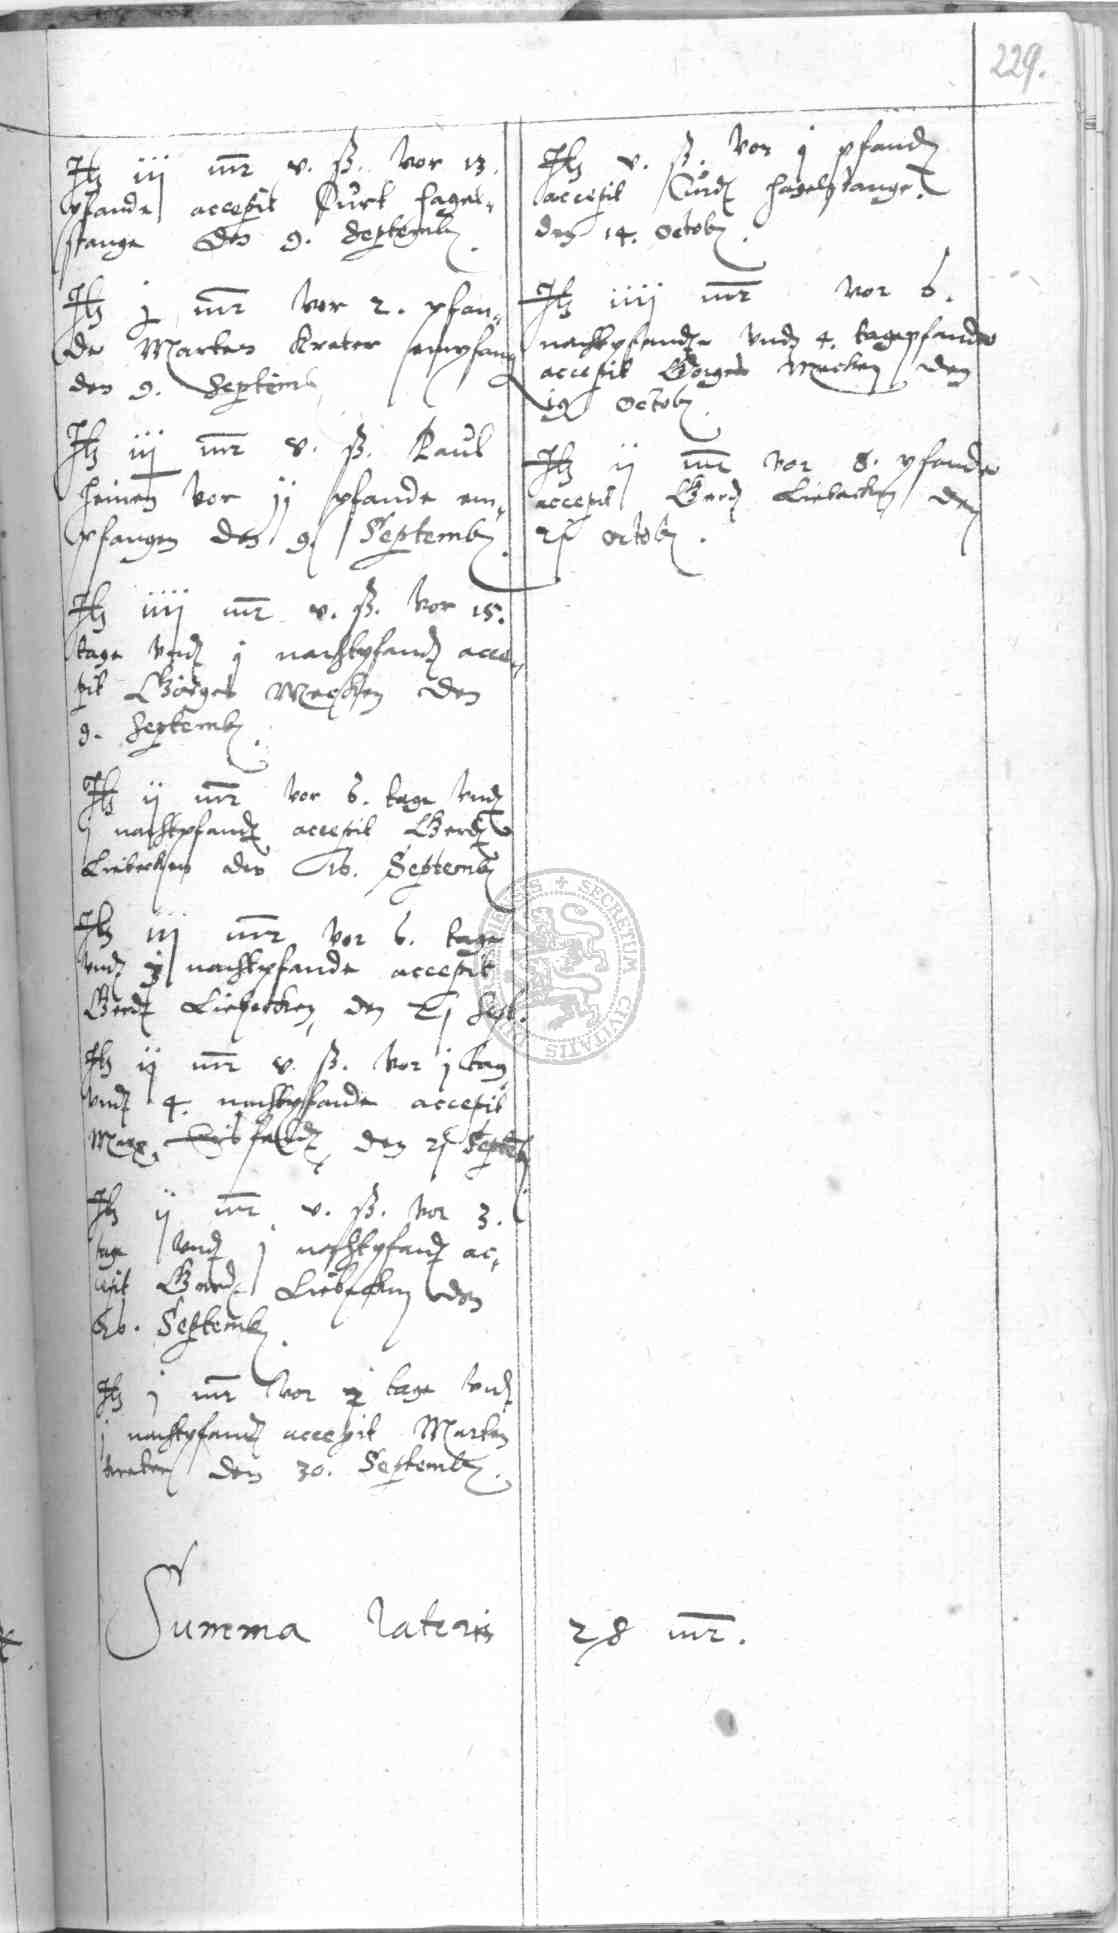 229.
Jtz iij mr v. ß. vor 13.
pfande accepit Curt hagel-
stange den 9. Septemb.
Jtz j mr vor 2. pfan-
de Marten Krater empfang
den 9. Septemb
Jtz iij mr v. ß. Paul
heinen vor jj pfande em-
pfangen den 9. Septemb.
Jtz iiij mr v. ß. vor 15.
tage vnd j nachtpfand acce-
pit Görges Mecken den
9. Septemb.
Jtz ij mr vor 6. tage vnd
j nachtpfand accepit Gerd
Liebecken den 16. Septemb
Jtz iij mr vor 6. tage
vnd nachtpfande accepit
Gerd Liebecken, den 21 Sept.
Jtz ij mr v. ß. vor j tag
vnd 4. nachtpfande accepit
Marx den 21 Septemb
Jtz ij mr v. ß. vor 3.
tage vnd j nachtpfand ac-
cepit Gerd Liebecken den
26. Septemb.
Jtz j mr vor tage vnd
j nachtpfand accepit Marten
Krater den 30. Septemb.
Jtz v. ß. vor j pfand
accepit Curd hagelstange
den 14. Octob.
Jtz iiij mr vor 6.
nachtpfande vnd 4. tagepfande
accepit Görges Mecken den
19 Octob.
Jtz ij mr vor 8. pfande
accepit Gerd Liebecken den
21 Octob.
Summa lateris 28 mr.
SECRETUM CIVITATIS